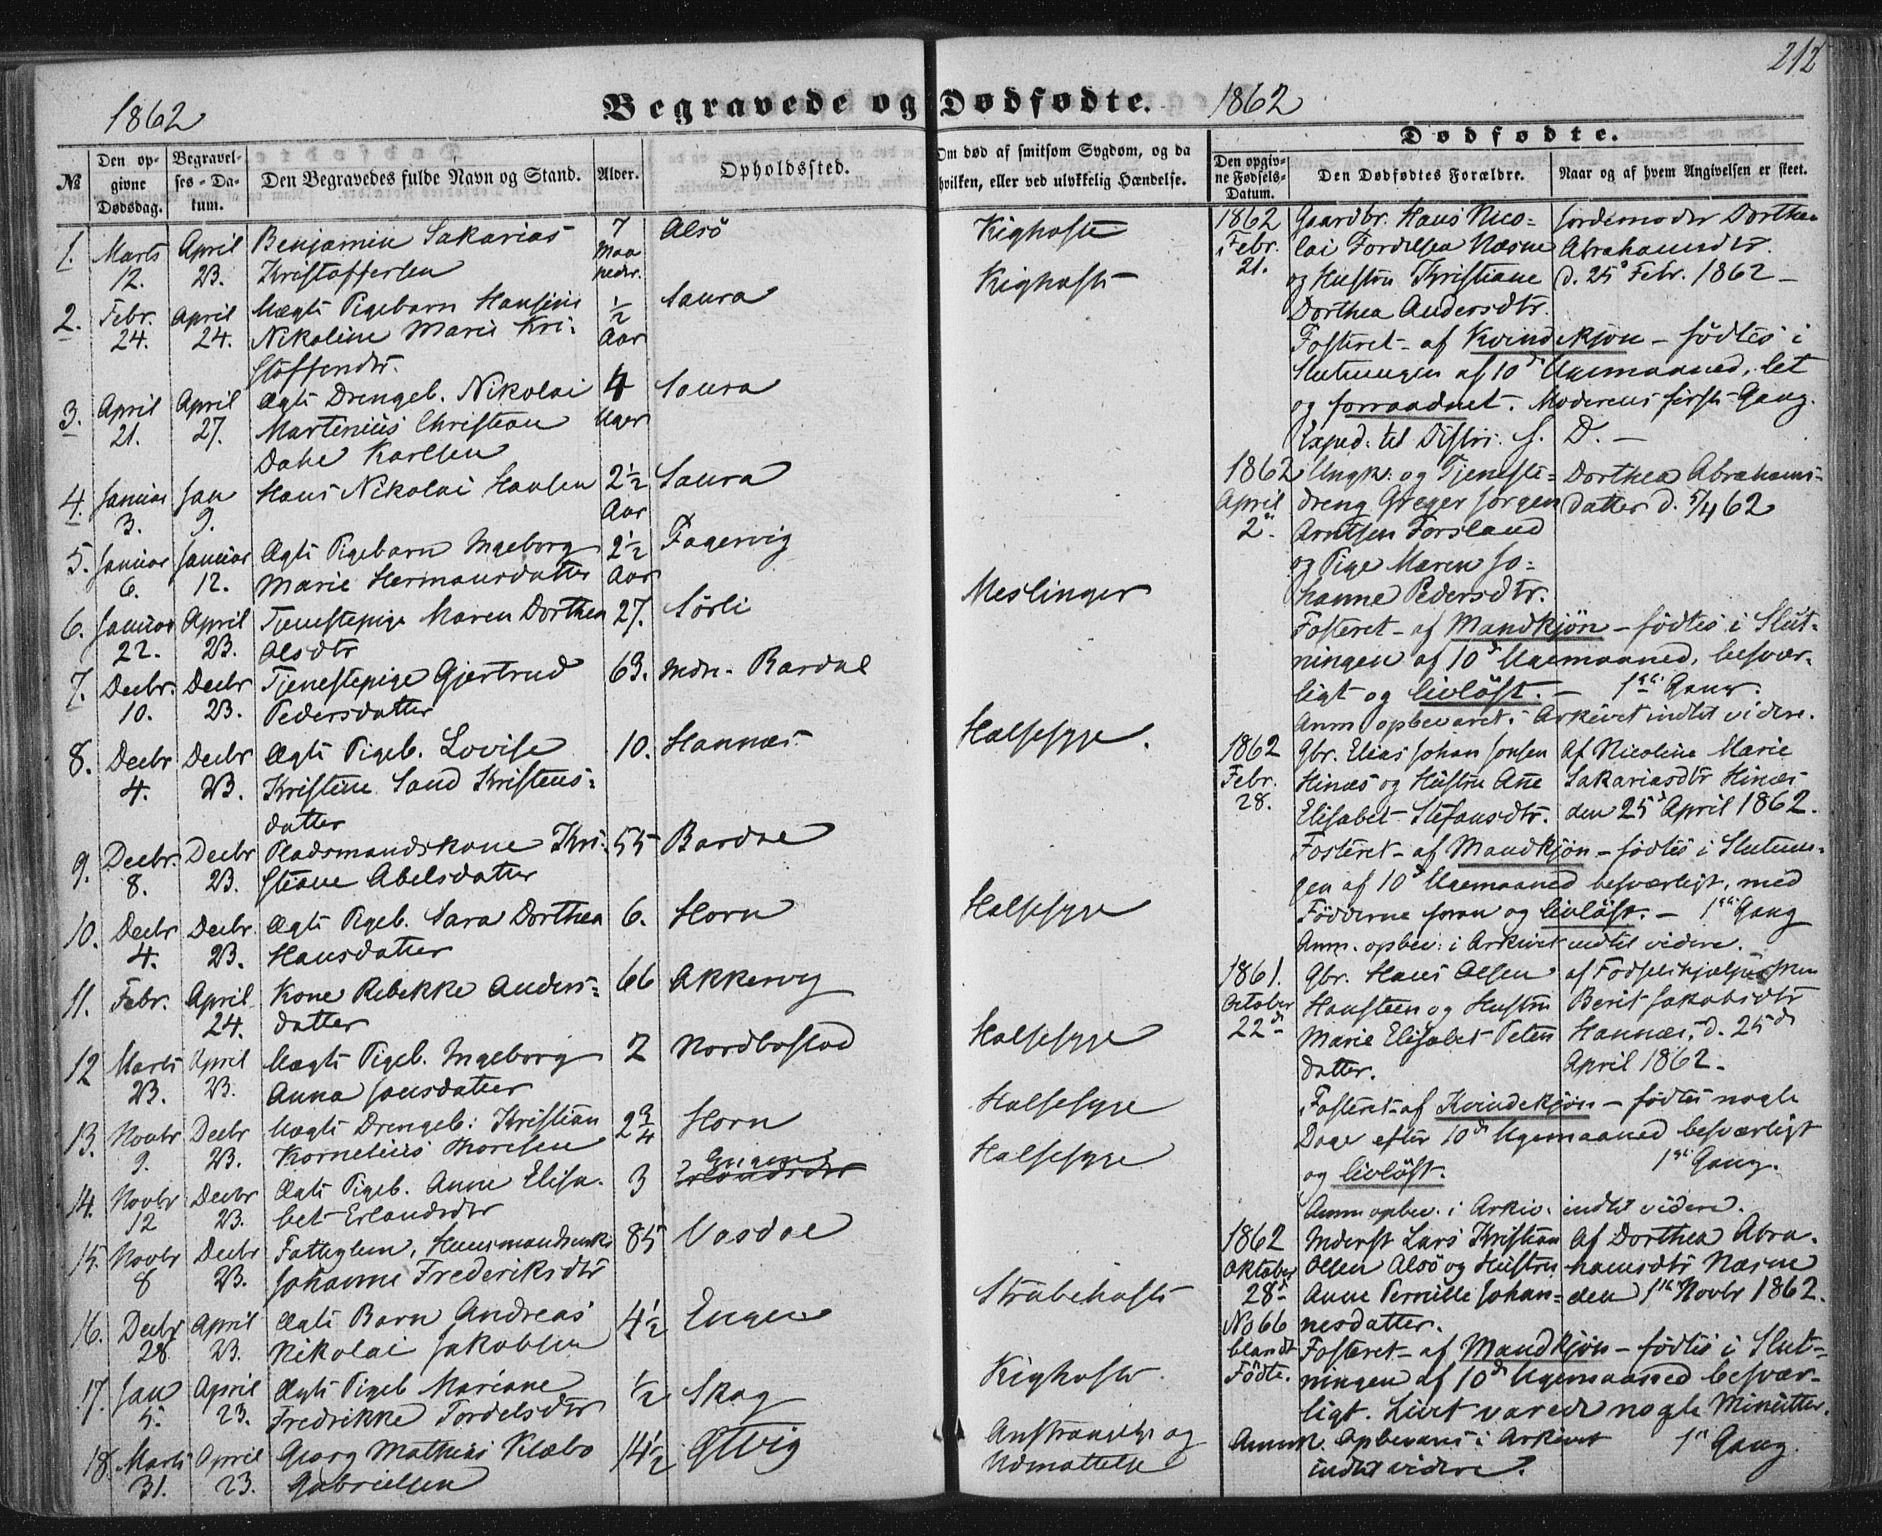 212
1862
Begravede og Dødfødte.
1862
№
Den opgivne Dødsdag.
Begravelses-Datum.
Den Begravedes fulde Navn og Stand.
Alder.
Opholdssted.
Om død af smitsom Sygdom, og da hvilken, eller ved ulykkelig Hændelse.
Dødfødte.
Den opgivne Fødsels-Datum.
Den Dødfødtes Forældre.
Naar og af hvem Angivelsen er skeet.
1. Marts April Benjamin Sakarias 7 Alsö Kighoste
12. 23. Kristoffersen Maaneder.
2. Febr. April Uægte Pigebarn Hansine ½ Saura Kighoste
24. 24. Nikoline Marie Kri- Aar
stoffersdtr.
3. April April Ægte Drengeb. Nikolai 4 Saura
21. 27. Martinius Christian Uger
Dahe Karlsen
4. Januar Jan Hans Nikolai Hansen 2½ Saura
3. 9. Aar
5. Januar Januar Ægte Pigebarn Ingeborg 2½ Fagervig
6. 12. Marie Hermansdatter Aar
6. Januar April Tjenestepige Maren Dorthea 27. Sörli Meslinger
22. 23. Olsdtr
7. Decbr. Decbr Tjenestepige Gjertrud 63. Mdn. Bardal
10. 23. Pedersdatter
8. Decbr Decbr Ægte Pigeb. Lovise 10. Hannæs Halsesyge.
4. 23. Kristine Sand Kristens-
datter
9. Decbr. Decbr Pladsmandskone Kri- 55 Bardal
8. 23. stiane Abelsdatter
10. Decbr Decbr. Ægte Pigeb. Sara Dorthea 6. Horn Halsesyge
4. 23. Hansdatter
11. Febr. April Kone Rebekke Anders- 66 Akkervig
24. datter
12 Marts April Uægte Pigeb. Ingeborg 2 Nordbostad Halsesyge
23. 23. Anna Jonsdatter
13. Novbr Decbr Uægte Drengeb: Kristian 2¾ Horn Halsesyge
9. 23. Kornelius Thoresen
14. Novbr Decbr Ægte Pigeb. Anne Elisa- 3 Engen Halsesyge
12 23. bet Erlandsdtr
15. Novbr Decbr Fattiglem, Huusmandsenke 85 Vasdal
8 23. Johanne Frederiksdtr
16. Decbr April Ægte Barn Andreas 4½ Engen Strubehoste
28 23. Nikolai Jakobsen
17. Jan April Ægte Pigeb Mariane ½ Skog Kighoste
5. 23. Fredrikke Tordelsdtr
18. Marts April Georg Mathias Klæbo 14½ Anstrængelse og
31. 23. Gabrielsen Udmattelse
1862 Gaardbr. Hans Nico- Jordemoder Dorthea
Febr. lai Fordelsen Næsne Abrahamsdtr.
21. og Hustru Kristiane d. 25 Febr. 1862 –
Dorthea Andersdtr.
Fosteret – af Kvindekjøn – fødtes i
Slutningen af 10de Ugemaaned, let
og forraadnet. Moderens første Gang.
Exped. til Distr: f. D. –
1862 Ungk. og Tjeneste- Dorthea Abrahams-
April dreng Greger Jørgen datter d. 5/4 62
2. Arntsen Forsland
og Pige Maren Jo-
hanne Pedersdtr.
Fosteret – af Mandkjøn – fødtes i Slut-
ningen af 10de Ugemaaned, besvær-
ligt og livløst. – 1ste Gang.
Anm. opbevaret i Arkivet indtil videre.
1862 Gbr. Elias Johan Jonsen Af Nicoline Marie
Febr. Hinæs og Hustru Ane Sakariasdtr Hinæs
28. Elisabet Stefansdtr. den 25de April 1862.
Fosteret – af Mandkjøn – fødtes i Slutnin-
gen af 10de Ugemaaned besværligt, med
Fødderne foran og livløst. – 1ste Gang
Anm. opbev: i Arkivet indtil videre.
1861. Gbr. Hans Olsen af Fødselshjælpersken
October Hansteen og Hustru Berit Jakobsdtr
22de Marie Elisabet Peters Hannæs, d. 25de
datter. April 1862.
Fosteret – af Kvindekjøn – fødtes nogle
Dage efter 10de Ugemaaned besværligt
og livløst. 1ste Gang.
Anm opbev. i Arkiv. indtil videre.
1862 Inderst Lars Kristian Af Dorthea Abra-
Oktober Olsen Alsö og Hustru hamsdtr Næsne
28de Anne Pernille Johan- den 1ste Novbr 1862.
No 66 nesdatter.
blandt Fosteret – af Mandkjøn – fødtes i Slut-
Fødte. ningen af 10de Ugemaaned besvær-
ligt. Livet varede nogle Minutter.
Anmk. Opbevares i Arkivet 1ste Gang.
indtil videre.